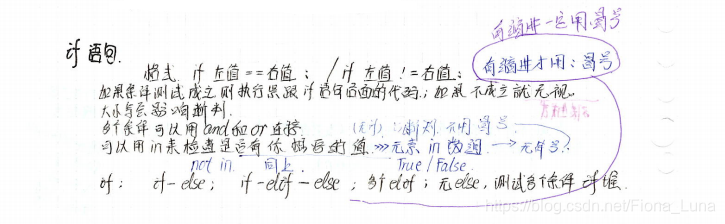 有缩进一定用冒号
if 语句.
有缩进才用：冒号
格式 if 左值 == 右值 ; / if 左值 != 右值 ;
如果条件测试成立则执行紧跟 if 语句后面的代码；如果不成立就无视.
大小写会影响断判.
多个条件可以用 and 和 or 连接.
判断 不用冒号.
可以用 in 来检查是否有 值 >>> 元素 in 数组. → 无冒号.
not in. 同上. True / False.
if ; if-else ; if-elif-else ; 多个 elif ; 无 else, 测试多个条件 if
https://blog.csdn.net/Fiona_Luna